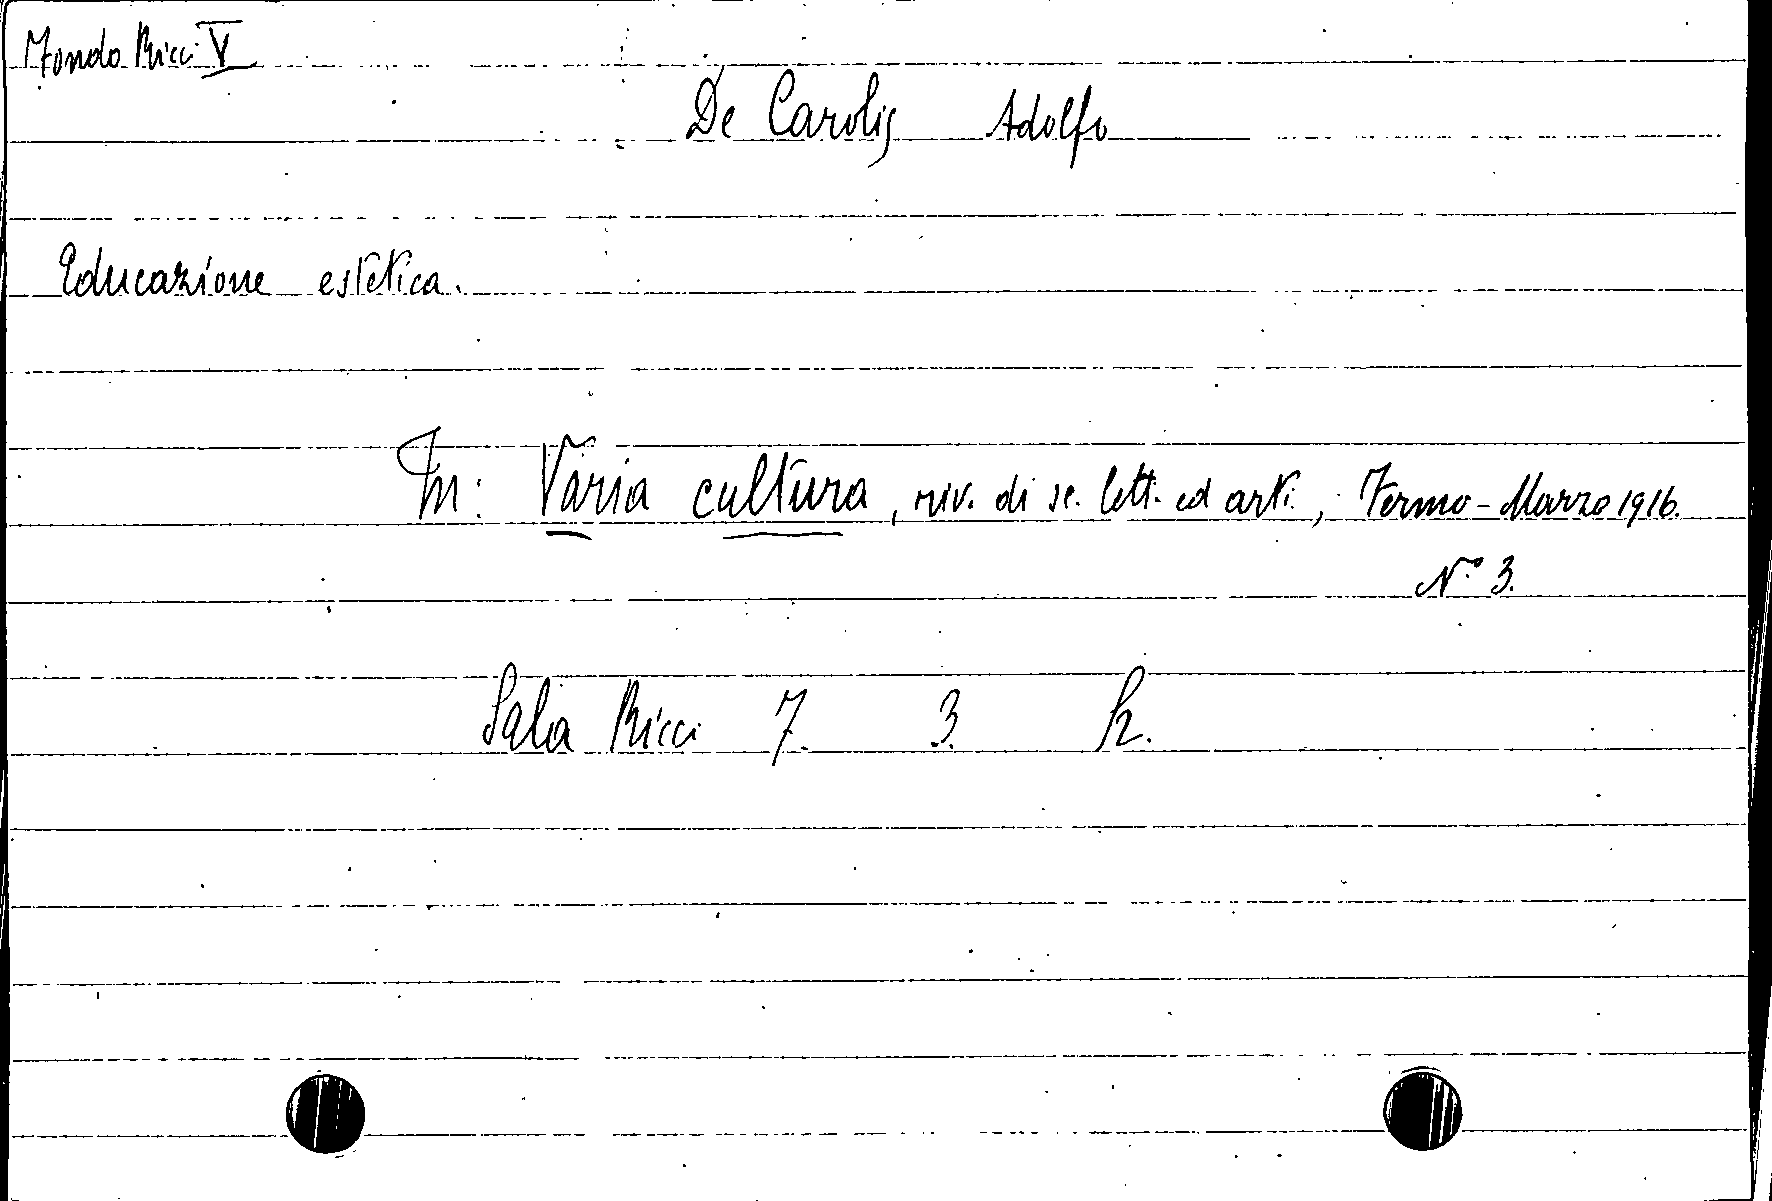 Fondo Ricci V
De Carolis Adolfo
Educazione estetica.
In: Varia cultura, riv. di sc. lett. ed arti, Fermo - Marzo 1916.
N.° 3.
Sala Ricci 7. 3. h.